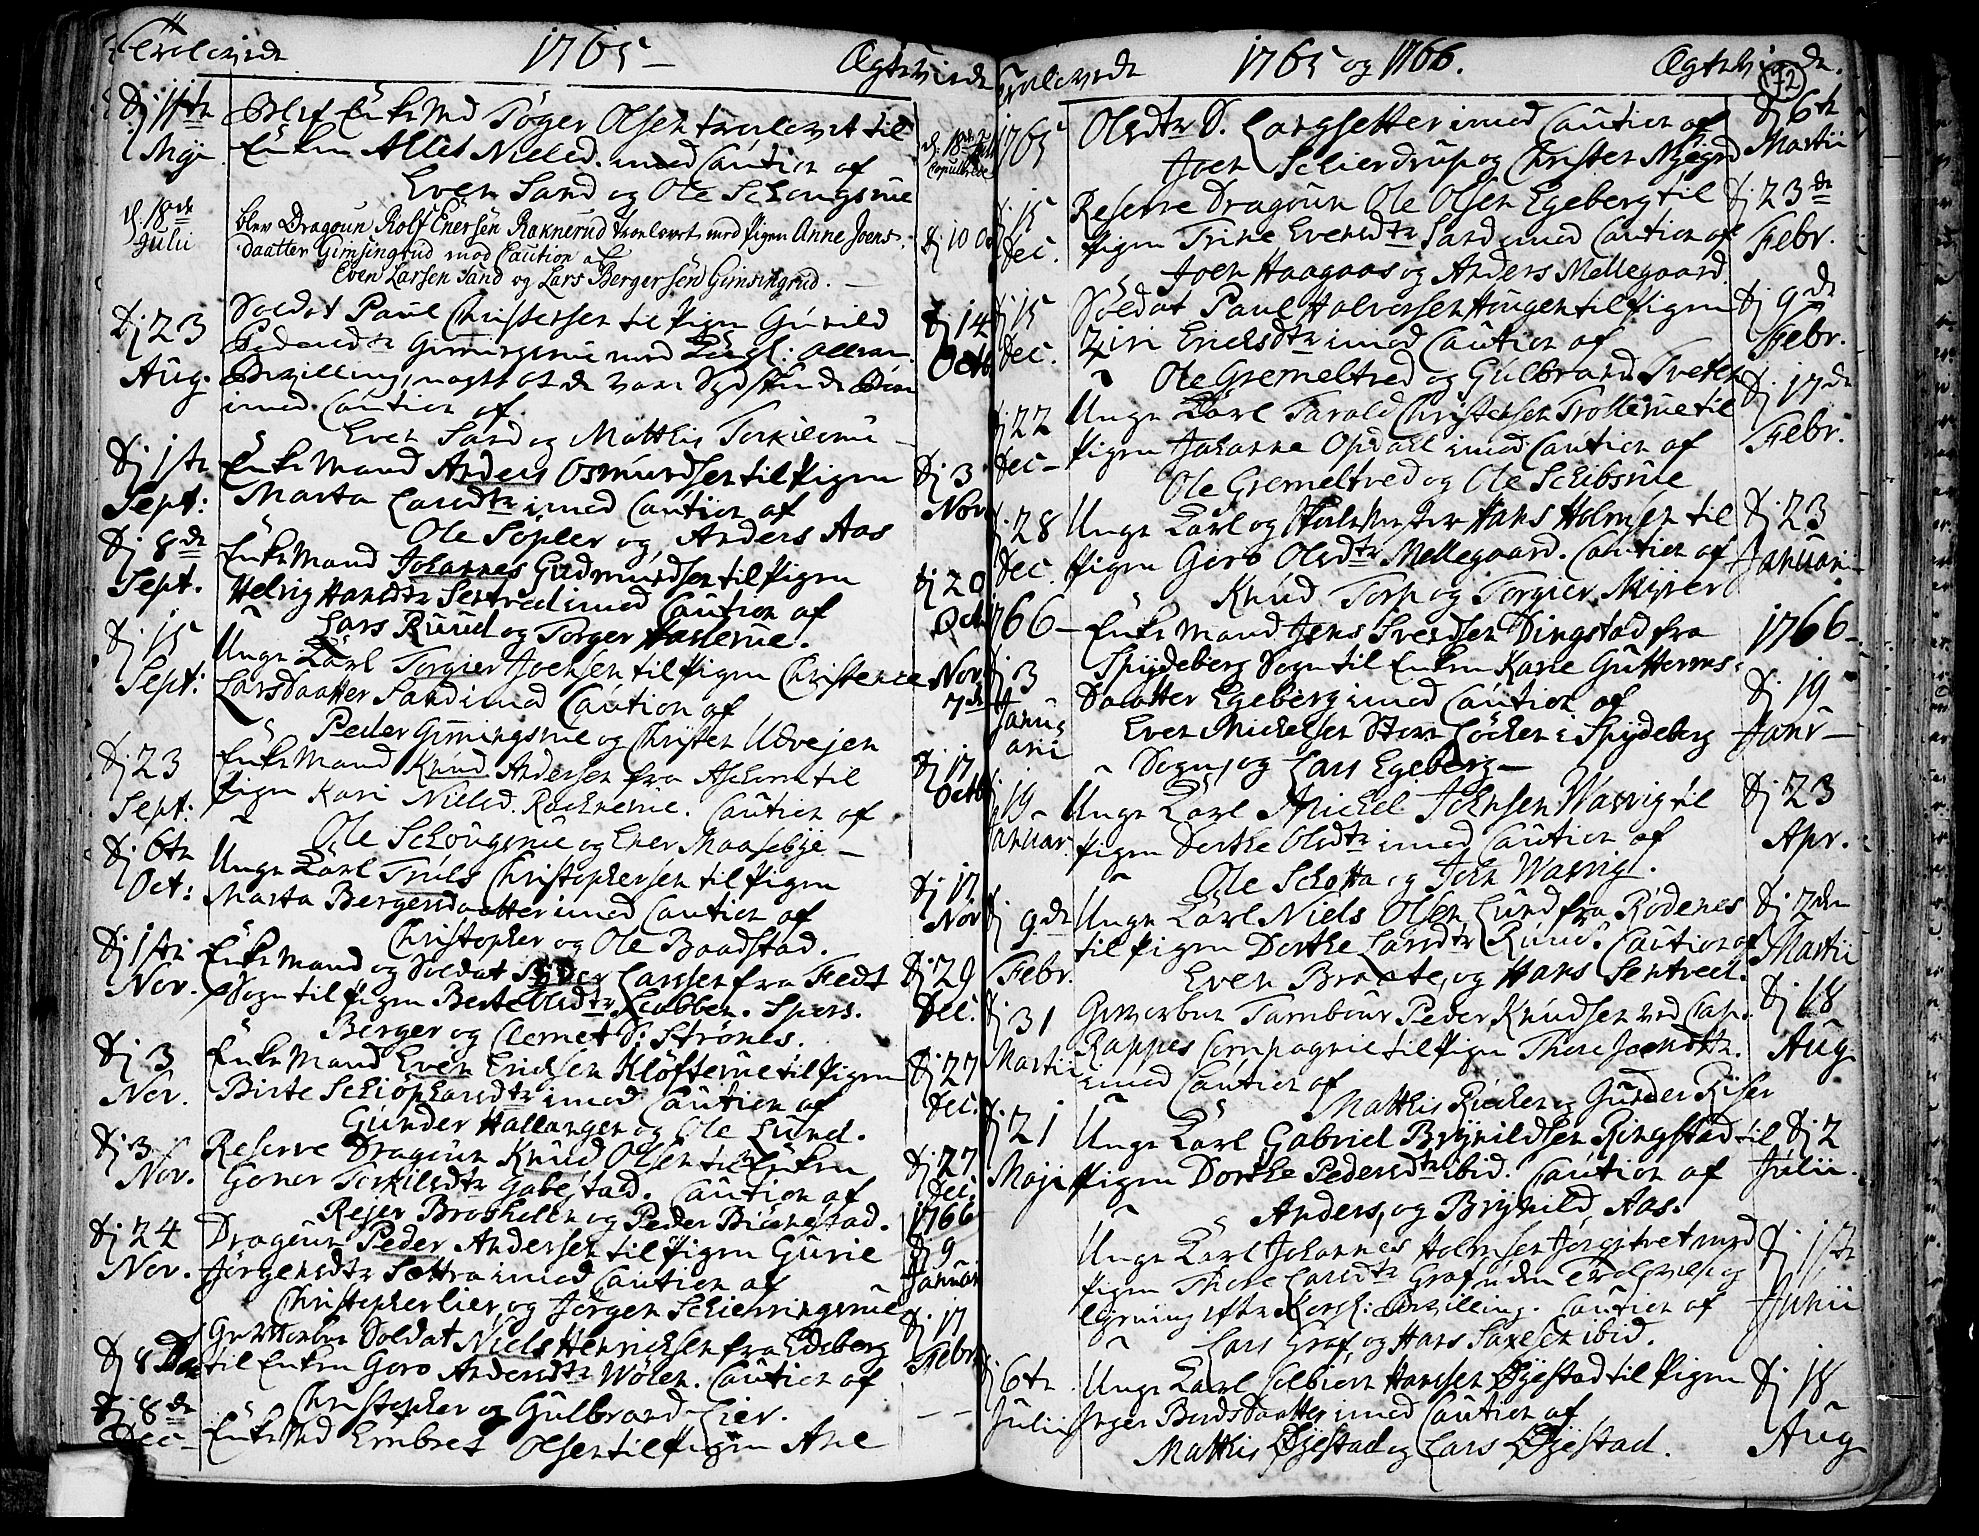 Trolovede 1765 Ægteviede
Dj 11te Maji
Blef Enke Md Tøger Olsen trolovet til
Enken Alles Nielsd. imod Caution af
Even Sand og Ole Schougsrue
d. 18de Julii
blev Dragoun Rolf Enersen Raknerud troelovet med Pigen Anne Joens-
daatter Gimsingrud mod Caution af
Even Larsen Sand og Lars Bergersen Gimsingrud.
Dj 23 Aug.
Soldat Paul Christersen til Pigen Gunild
Gimingsrue med Kongl: allern.
Bevilling, at de vare Sydskende Børn
imod Caution af
Even Sand og Matthis Torkilsrue
Dj 14 Octb
Dj 1ste Sept:
Enke Mand Anders Osmundsen til Pigen
Marta Larsdtr imod Caution af
Ole Sopler og Anders Aas
Dj 3 Nov
Dj 8de Sept.
Enke Mand Johannes Gudmundsen til Pigen
Helvig Hansdtr Sentved imod Caution af
Lars Ruud og Torger Haslerue.
Dj 20 Oct
Dj 15 Sept:
Unge Karl Torgier Joensen til Pigen Christence
Larsdaatter Sand imod Caution af
Peder Gimingsrue og Christen Udvejen
Nov 7de
Dj 23 Sept:
Enke Mand Knud Andersen fra Aschim til
Pigen Kari Nielsd. Racknerue. Caution af
Ole Schougsrue og Ener Maasebye
Dj 17 Octb
Dj 6te Oct:
Unge Karl Truls Christophersen til Pigen
Marta Bergersdaatter imod Caution af
Christopher og Ole Baadstad.
Dj 17 Nov
Dj 1ste Nov.
Enke Mand og Soldat Peder Larssen fra Fedt
Sogn til Pigen Berte Olsdtr Klobben. Spors.
Berger og Clemet S: Strønes.
Dj 29 Dec.
Dj 3 Nov.
Enke Mand Even Erichsen Kløfterue til Pigen
Birte Schiøpharsdtr imod Caution af
Gunder Hallangen og Ole Lund.
Dj 27 Dec.
Dj 3 Nov.
Reserve Dragoun Knud Olsen til Enken
Goner Torkilsdtr Gabestad. Caution af
Rejer Broshellen og Peder Biønestad.
Dj 27 Dec.
Dj 24 Nov.
Dragoun Peder Andersen til Pigen Gurie
Jørgensdtr Sættra imod Caution af
Christopher Lier og Jørgen Schierringsrue
1766 Dj 9 Januar
Dj 8 Dec
Gevorben Soldat Niels Henrichsen fra Edeberg
til Enken Goro Andersdtr Wølen. Caution af
Christopher og Gulbrand Lier.
Dj 17 Febr
Dj 8de Dec
Enke Md Embret Olsen til Pigen Ane
Trolovede 1765 og 1766. Ægteviede.
72
1765
Olsdtr D. Langsetter imod Caution af
Joen Schierdrup og Christen Nygrd
Dj 6te Martii
Dj 15 Dec.
Reserve Dragoun Ole Olsen Egeberg til
Pigen Trine Evensdtr Sand imod Caution af
Joen Haagaas og Anders Mellegaard
Dj 23de Febr.
Dj 15 Dec.
Soldat Paul Halvorsen Haugen til Pigen
Ziri Erichsdtr imod Caution af
Ole Gremeltved og Gulbrand Tveten
Dj 9de Febr.
Dj 22 Dec
Unge Karl Tarald Christensen Trollerue til
Pigen Johanne Opdahl imod Caution af
Ole Gremeltved og Ole Schibsrue
Dj 17de Febr.
Dj 28 Dec.
Unge Karl og Skolemester Hans Holmsen til
Pigen Goro Olsdtr Mellegaard. Caution af
Knud Torp og Torgier Myrer
Dj 23 Januarii
1766
Dj 3 Januarii
Enke Mand Jens Svendsen Dingstad fra
Spydeberg Sogn til Enken Karie Gutterms-
Daatter Egeberg imod Caution af
Even Michelsen Store Løcken i Spydeberg
Sogn, og Lars Egeberg
1766 Dj 19 Janr
Dj 19 Januar.
Unge Karl Michel Johnsen Wasvig til
Pigen Dorthe Olsdtr imod Caution af
Ole Schotta og John Wasvig.
Dj 23 Apr.
Dj 9de Febr.
Unge Karl Niels Olsen Lund fra Rødenes
til Pigen Dorthe Larsdtr Ruud. Caution af
Even Braate, og Hans Sentved.
Dj 7den Martii
Dj 31 Martii
Gevorben Tambour Peder Knudsen ved Cap.
Rappes Compagnie til Pigen Thore Joensdtr.
imod Caution af
Matthis Riiser og Gunder Riser
Dj 18 Aug
Dj 21 Maji
Unge Karl Gabriel Brynildsen Ringstad til
Pigen Dorthe Pedersdtr ibid. Caution af
Anders, og Brynild Aas.
Dj 2 Julii.
Unge Karl Johannes Holmsen med
Pigen Thore Larsdtr Graf uden Trolovelse og
lysning efter Kongl: Bevilling. Caution af
Lars Graf og Hans Saxesen ibid.
Dj 1ste Junii
Dj 6te Julii
Unge Karl Colbiørn Hanssen Øyestad til Pigen
Inger Bordsdaatter imod Caution af
Matthis Øyestad og Lars Øyestad.
Dj 18 Aug